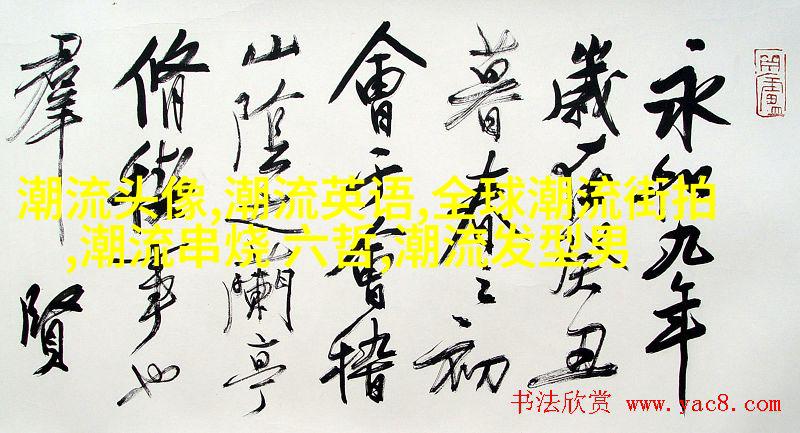 永和九年
歲在癸丑
暮春之初
會于會稽
山陰之蘭亭
脩禊事也
羣賢
潮流头像,潮流英语,全球潮流街拍
,潮流串烧 六哲,潮流发型男
书法欣赏 www.yac8.com